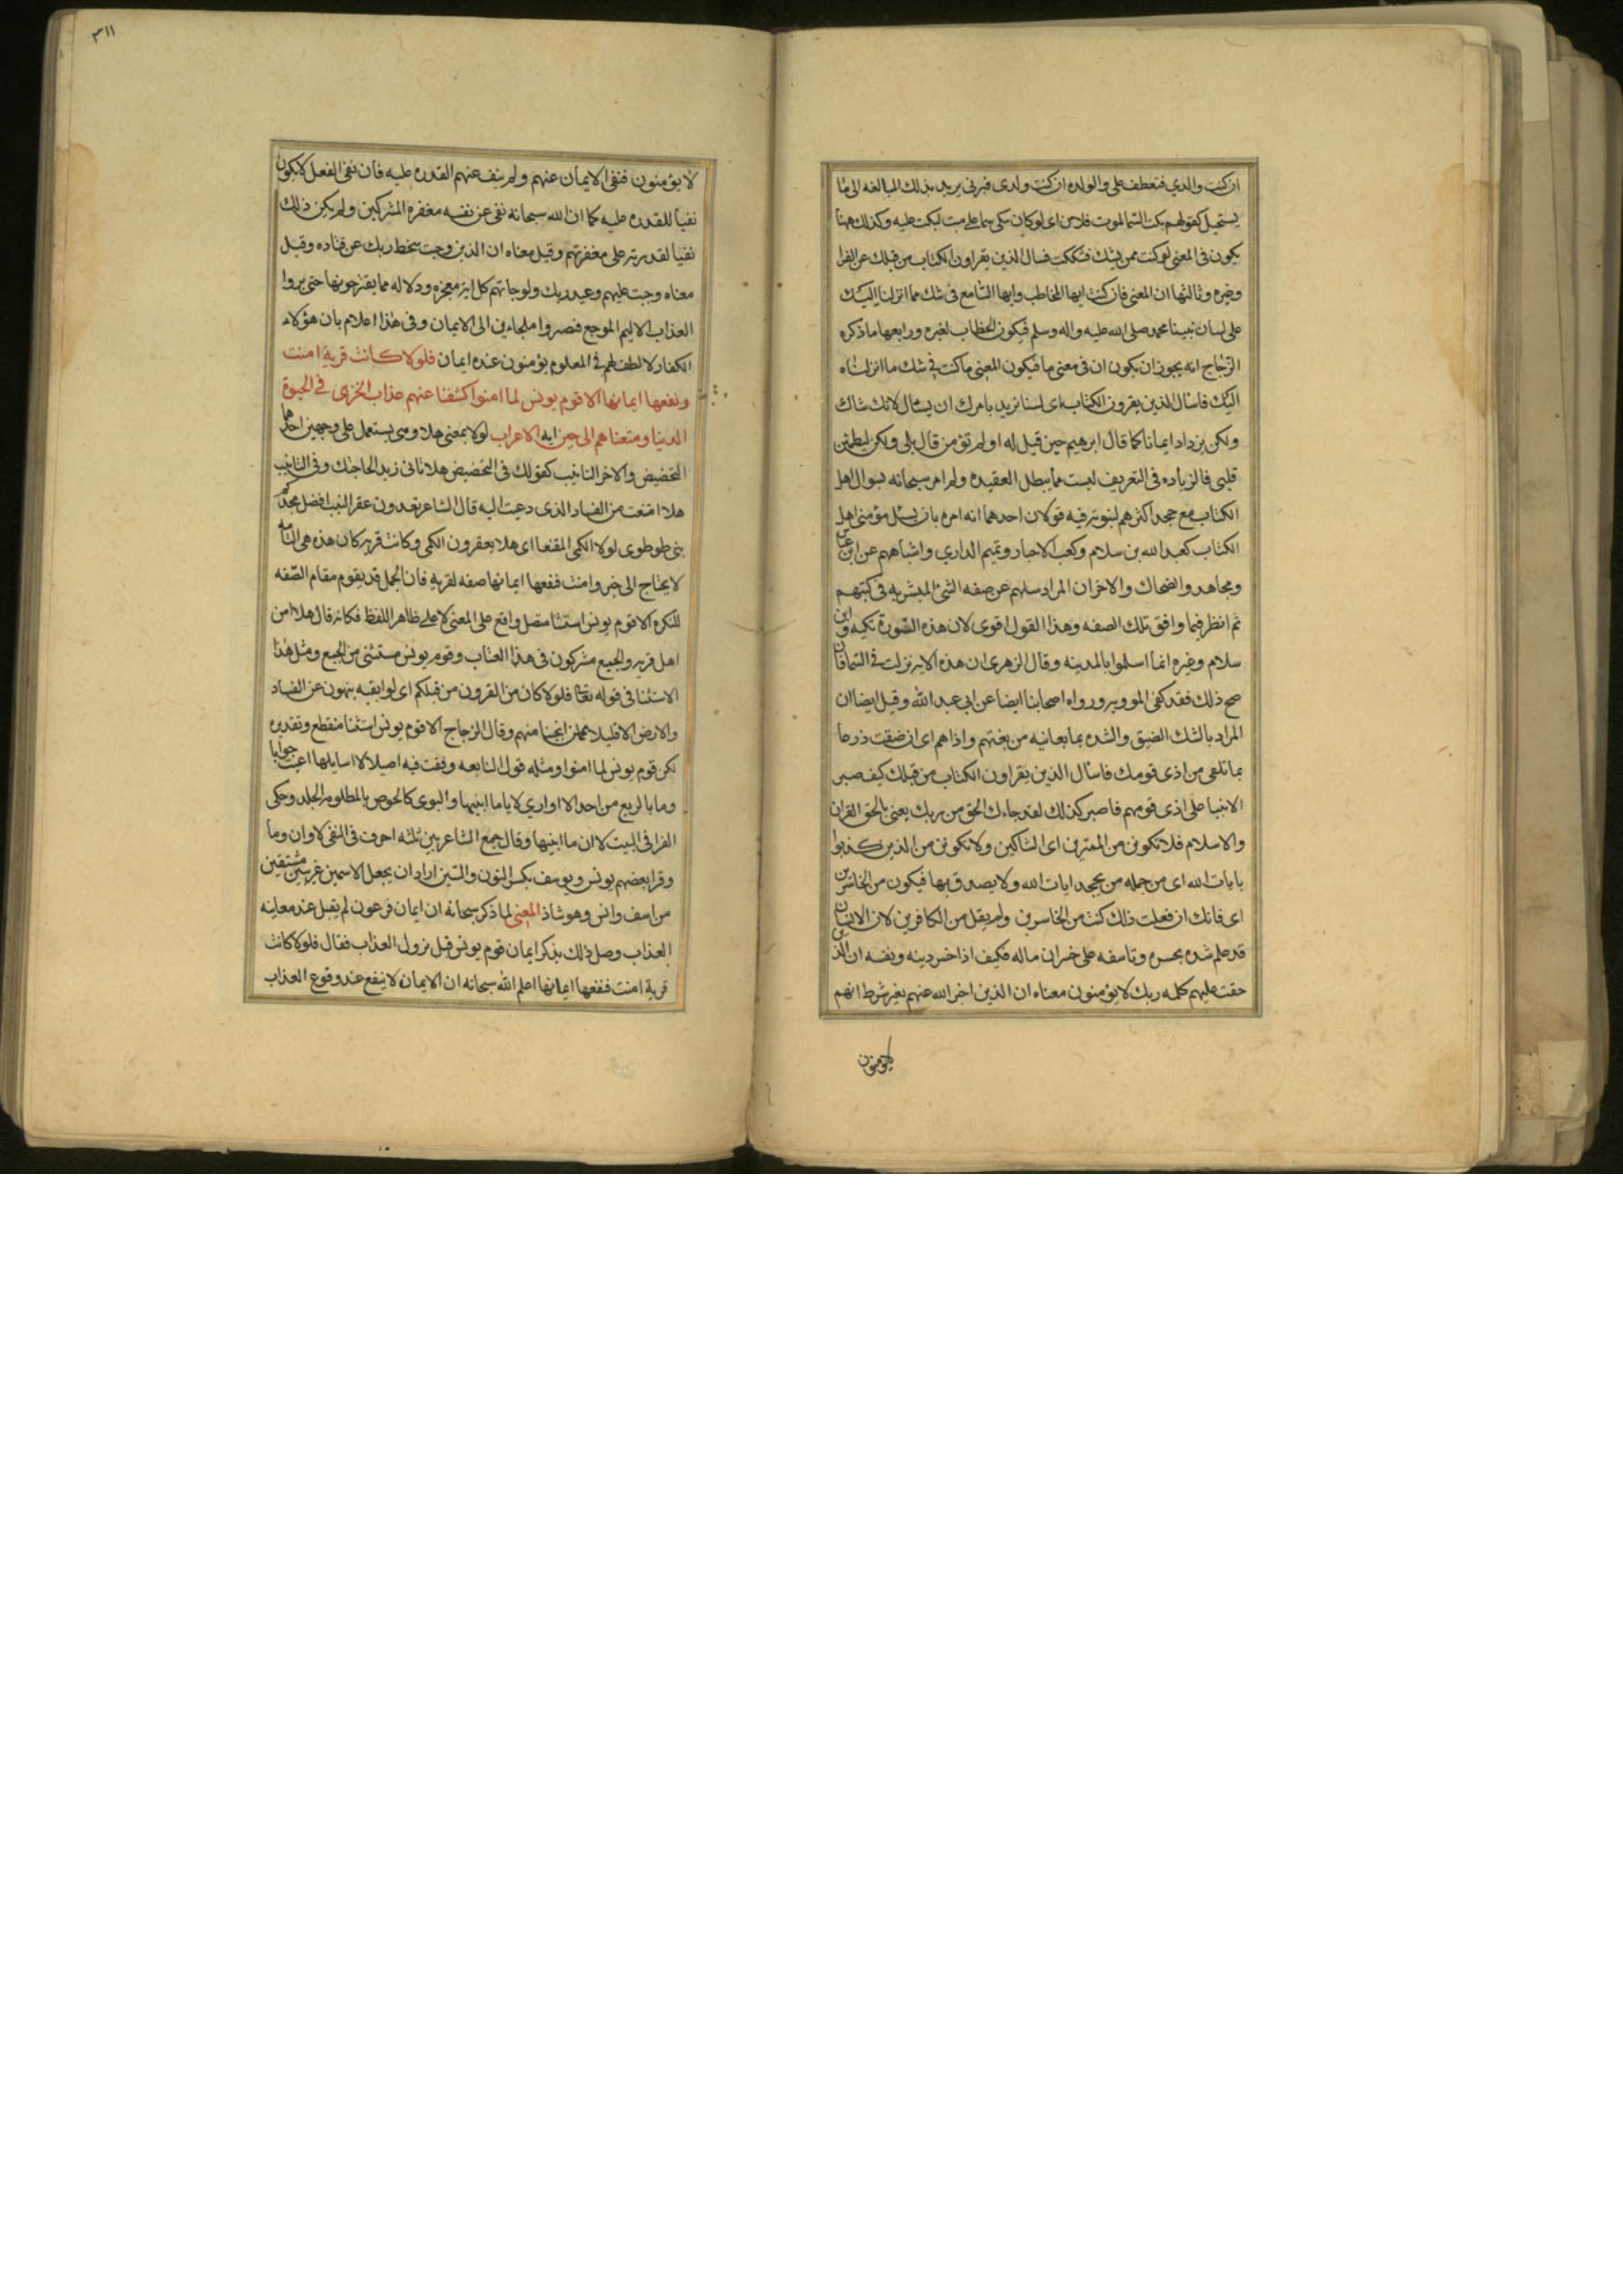 ان كنت والدي فتعطف علي والولده ان كنت ولدى فبرني يريد بذلك المبالغه الى ما
يستحيل كقولهم بكت السما لموت فلان اى لو كان تبكى سما على ميت لبكت عليه وكذلك ههنا
يكون فى المعنى لو كنت ممن يشك فشككت فسال الذين يقراون الكتاب من قبلك عن الفرا
وغيره وثالثها ان المعنى فان كنت ايها المخاطب وايها السامع فى شك مما انزلنا اليك
على لسان نبينا محمد صلى الله عليه واله وسلم فيكون الخطاب لغيره ورابعها ما ذكره
الزجاج انه يجوز ان يكون ان فى معنى ما فيكون المعنى ما كنت فى شك مما انزلناه
اليك فاسال الذين يقرون الكتاب اى لسنا نريد بامرك ان يسال لانك شاك
ولكن يزداد ايمانا كما قال ابرهيم حين قيل له اولم تؤمن قال بلى ولكن ليطمئن
قلبى فالزياده فى التعريف ليست مما يبطل العقيده ولم امر سبحانه بسوال اهل
الكتاب مع جحد اكثرهم لنبوته فيه قولان احدهما انه امره بان يسئل مؤمنى اهل
الكتاب كعبد الله بن سلام وكعب الاحبار وتميم الداري واشباههم عن ابن عباس
ومجاهد والضحاك والاخر ان المراد سلهم عن صفه النبى المبشر به فى كتبهم
ثم انظر فيما وافق تلك الصفه وهذا القول اقوى لان هذه السورة مكيه وابن
سلام وغيره انما اسلموا بالمدينه وقال الزهرى ان هذه الايه نزلت فى السما فان
صح ذلك فقد كفى المووبه ورواه اصحابنا ايضا عن ابى عبد الله وقيل ايضا ان
المراد بالشك الضيق والشده بما يعانيه من بغتهم واذاهم اى ان ضقت ذرعا
بما تلقى من اذى قومك فاسال الذين يقراون الكتاب من قبلك كيف صبر
الانبيا على اذى قومهم فاصبر كذلك لقد جاءك الحق من ربك يعنى بالحق القران
والاسلام فلا تكونن من الممترين اى الشاكين ولا تكونن من الذين كذبوا
بايات الله اى من جمله من يجحد ايات الله ولا يصدق بها فيكون من الخاسرين
اى فانك ان فعلت ذلك كنت من الخاسرين ولم يقل من الكافرين لان الانسان
قد علم شده تحسره وتاسفه على خسران ماله فكيف اذا خسر دينه ونفسه ان الذين
حقت عليهم كلمه ربك لا يؤمنون معناه ان الذين اخبر الله عنهم بغير شرط انهم
لا يؤمنون
٣١١
لا يؤمنون فنفى الايمان عنهم ولم ينف عنهم القدره عليه فان نفى الفعل لا يكون
نفيا للقدره عليه كما ان الله سبحانه نفى عن نفسه مغفره المشركين ولم يكن ذلك
نفيا لقدرته على مغفرتهم وقيل معناه ان الذين وجبت سخط ربك عن قتاده وقيل
معناه وجبت عليهم وعيد ربك ولو جاتهم كل ايه معجزه ودلاله مما يقترحونها حتى يروا
العذاب الاليم الموجع فصروا ملجاءين الى الايمان وفى هذا اعلام بان هؤلاء
الكفار لا لطف لهم فى المعلوم يؤمنون عنده ايمان فلولا كانت قرية امنت
ونفعها ايمانها الا قوم يونس لما امنوا كشفنا عنهم عذاب الخزى فى الحيوة
الدنيا ومتعناهم الى حين ايه الاعراب لولا بمعنى هلا وهى يستعمل على وجهين احدهما
التحضيض والاخر التانيب كقولك فى التحضيض هلا تاتى زيد الحاجتك وفى التانيب
هلا امتنعت من الفساد الذى دعيت اليه قال الشاعر تعدون عقر النيب افضل مجدكم
بنى طوطرى لولا الكمى المقنعا اى هلا يعقرون الكمى وكانت قريه كان هذه هى التامه
لا يحتاج الى خبر وامنت فنفعها ايمانها صفه لقرية فان الجمل قد يقوم مقام الصفه
للنكره الا قوم يونس استثنا متصل واقع على المعنى لا على ظاهر اللفظ فكانه قال هلا امن
اهل قريه والجميع مشركون فى هذا العتاب وقوم يونس مستثنى من الجميع ومثل هذا
الاستثنا فى قوله تعالى فلولا كان من القرون من قبلكم اى لو ابقيه ينهون عن الفساد
والارض الا قليلا ممن انجينا منهم وقال الزجاج الا قوم يونس استثنا منقطع وتقديره
لكن قوم يونس لما امنوا ومثله قول النابغه وقفت فيه اصيلالا اسايلها اعيت جوابا
وما بالربع من احد الا اواري لاياما ابنيها والنوى كالحوض بالمظلومه الجلد وحكى
الفرا فى البيت لا ان ما ابنيها وقال جمع الشاعر بين ثلثه احرف فى النفى لا وان وما
وقرا بعضهم يونس ويوسف بكسر النون والسين اراد ان يجعل الاسمين عربيين مشتقين
من اسف وانس وهو شاذ المعنى لما ذكر سبحانه ان ايمان فرعون لم يقبل عند معاينه
العذاب وصل ذلك بذكر ايمان قوم يونس قبل نزول العذاب فقال فلولا كانت
قرية امنت فنفعها ايمانها اعلم الله سبحانه ان الايمان لا ينفع عند وقوع العذاب